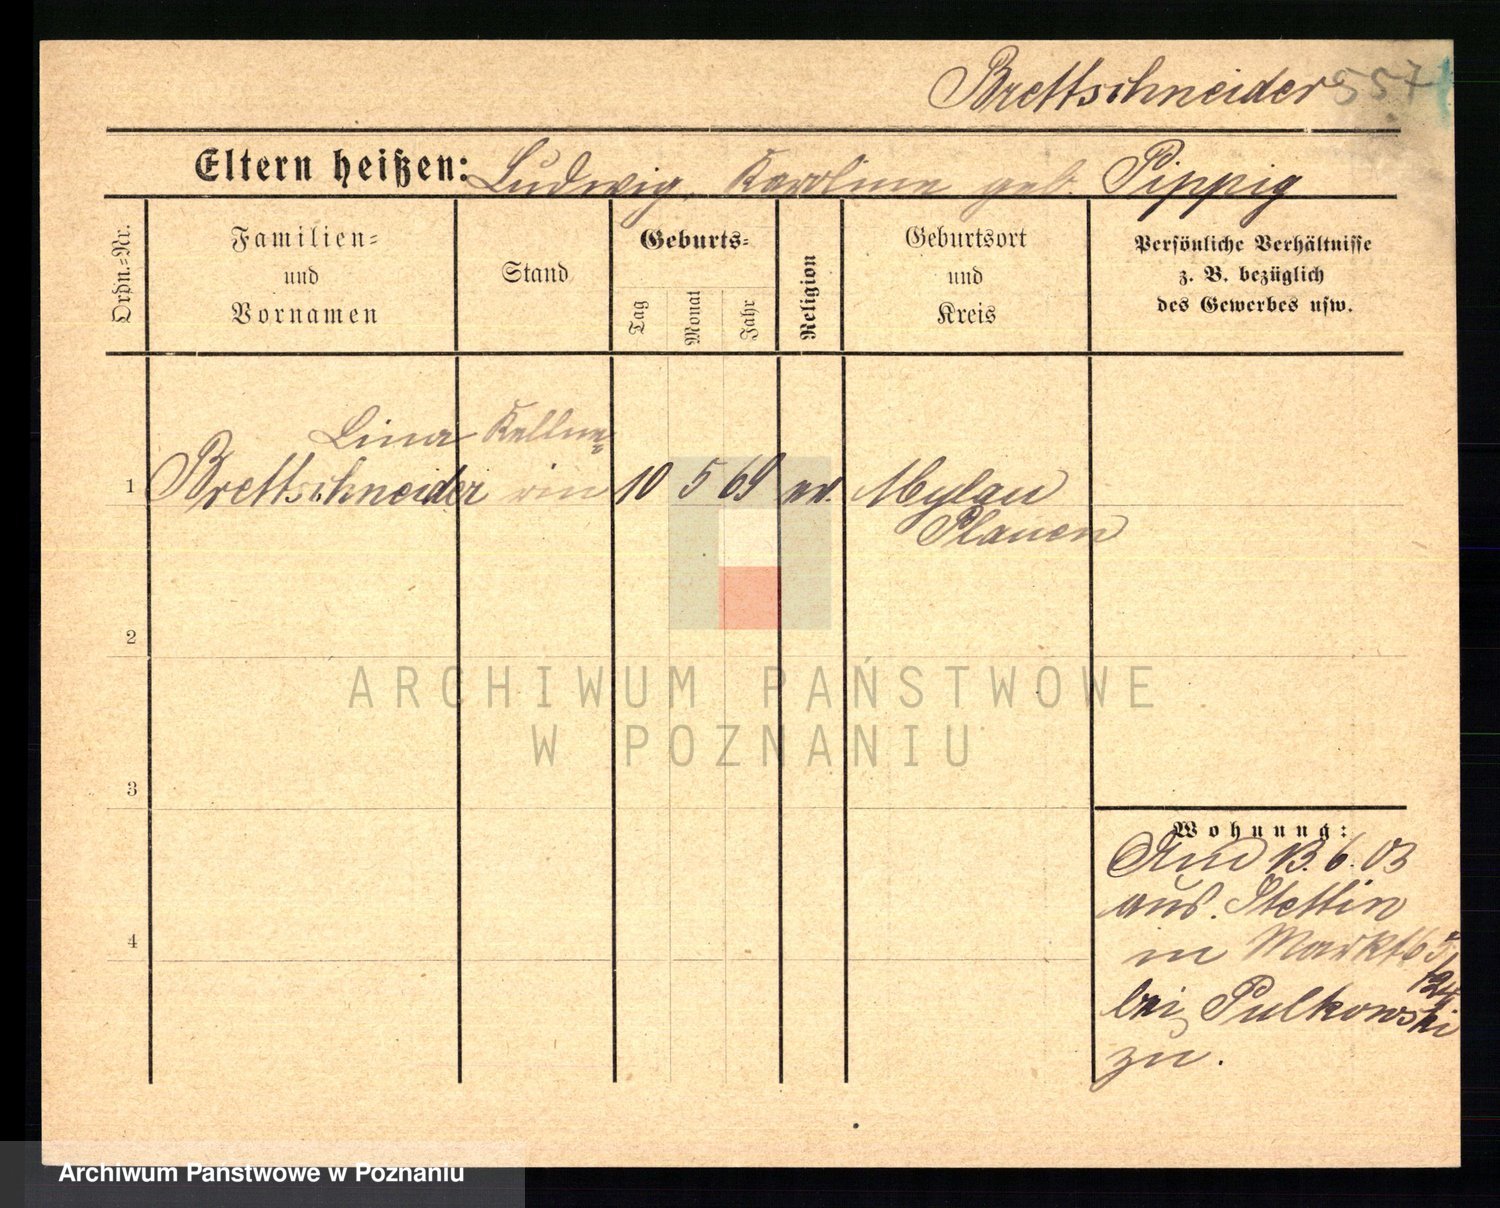 Brettschneider 557
Eltern heißen: Ludwig, Karoline geb. Pippig
Ordn.=Nr.
Familien=
und
Vornamen
Stand
Geburts=
Tag
Monat
Jahr
Religion
Geburtsort
und
Kreis
Persönliche Verhältnisse
z. B. bezüglich
des Gewerbes usw.
Lina Kellne=
1 Brettschneider rin 10 5 69 ev. Mylau
Plauen
2
3
4
Wohnung:
13.6.03
aus Stettin
in Markt 65
bei Pulkowski
zu.
ARCHIWUM PAŃSTWOWE
W POZNANIU
Archiwum Państwowe w Poznaniu